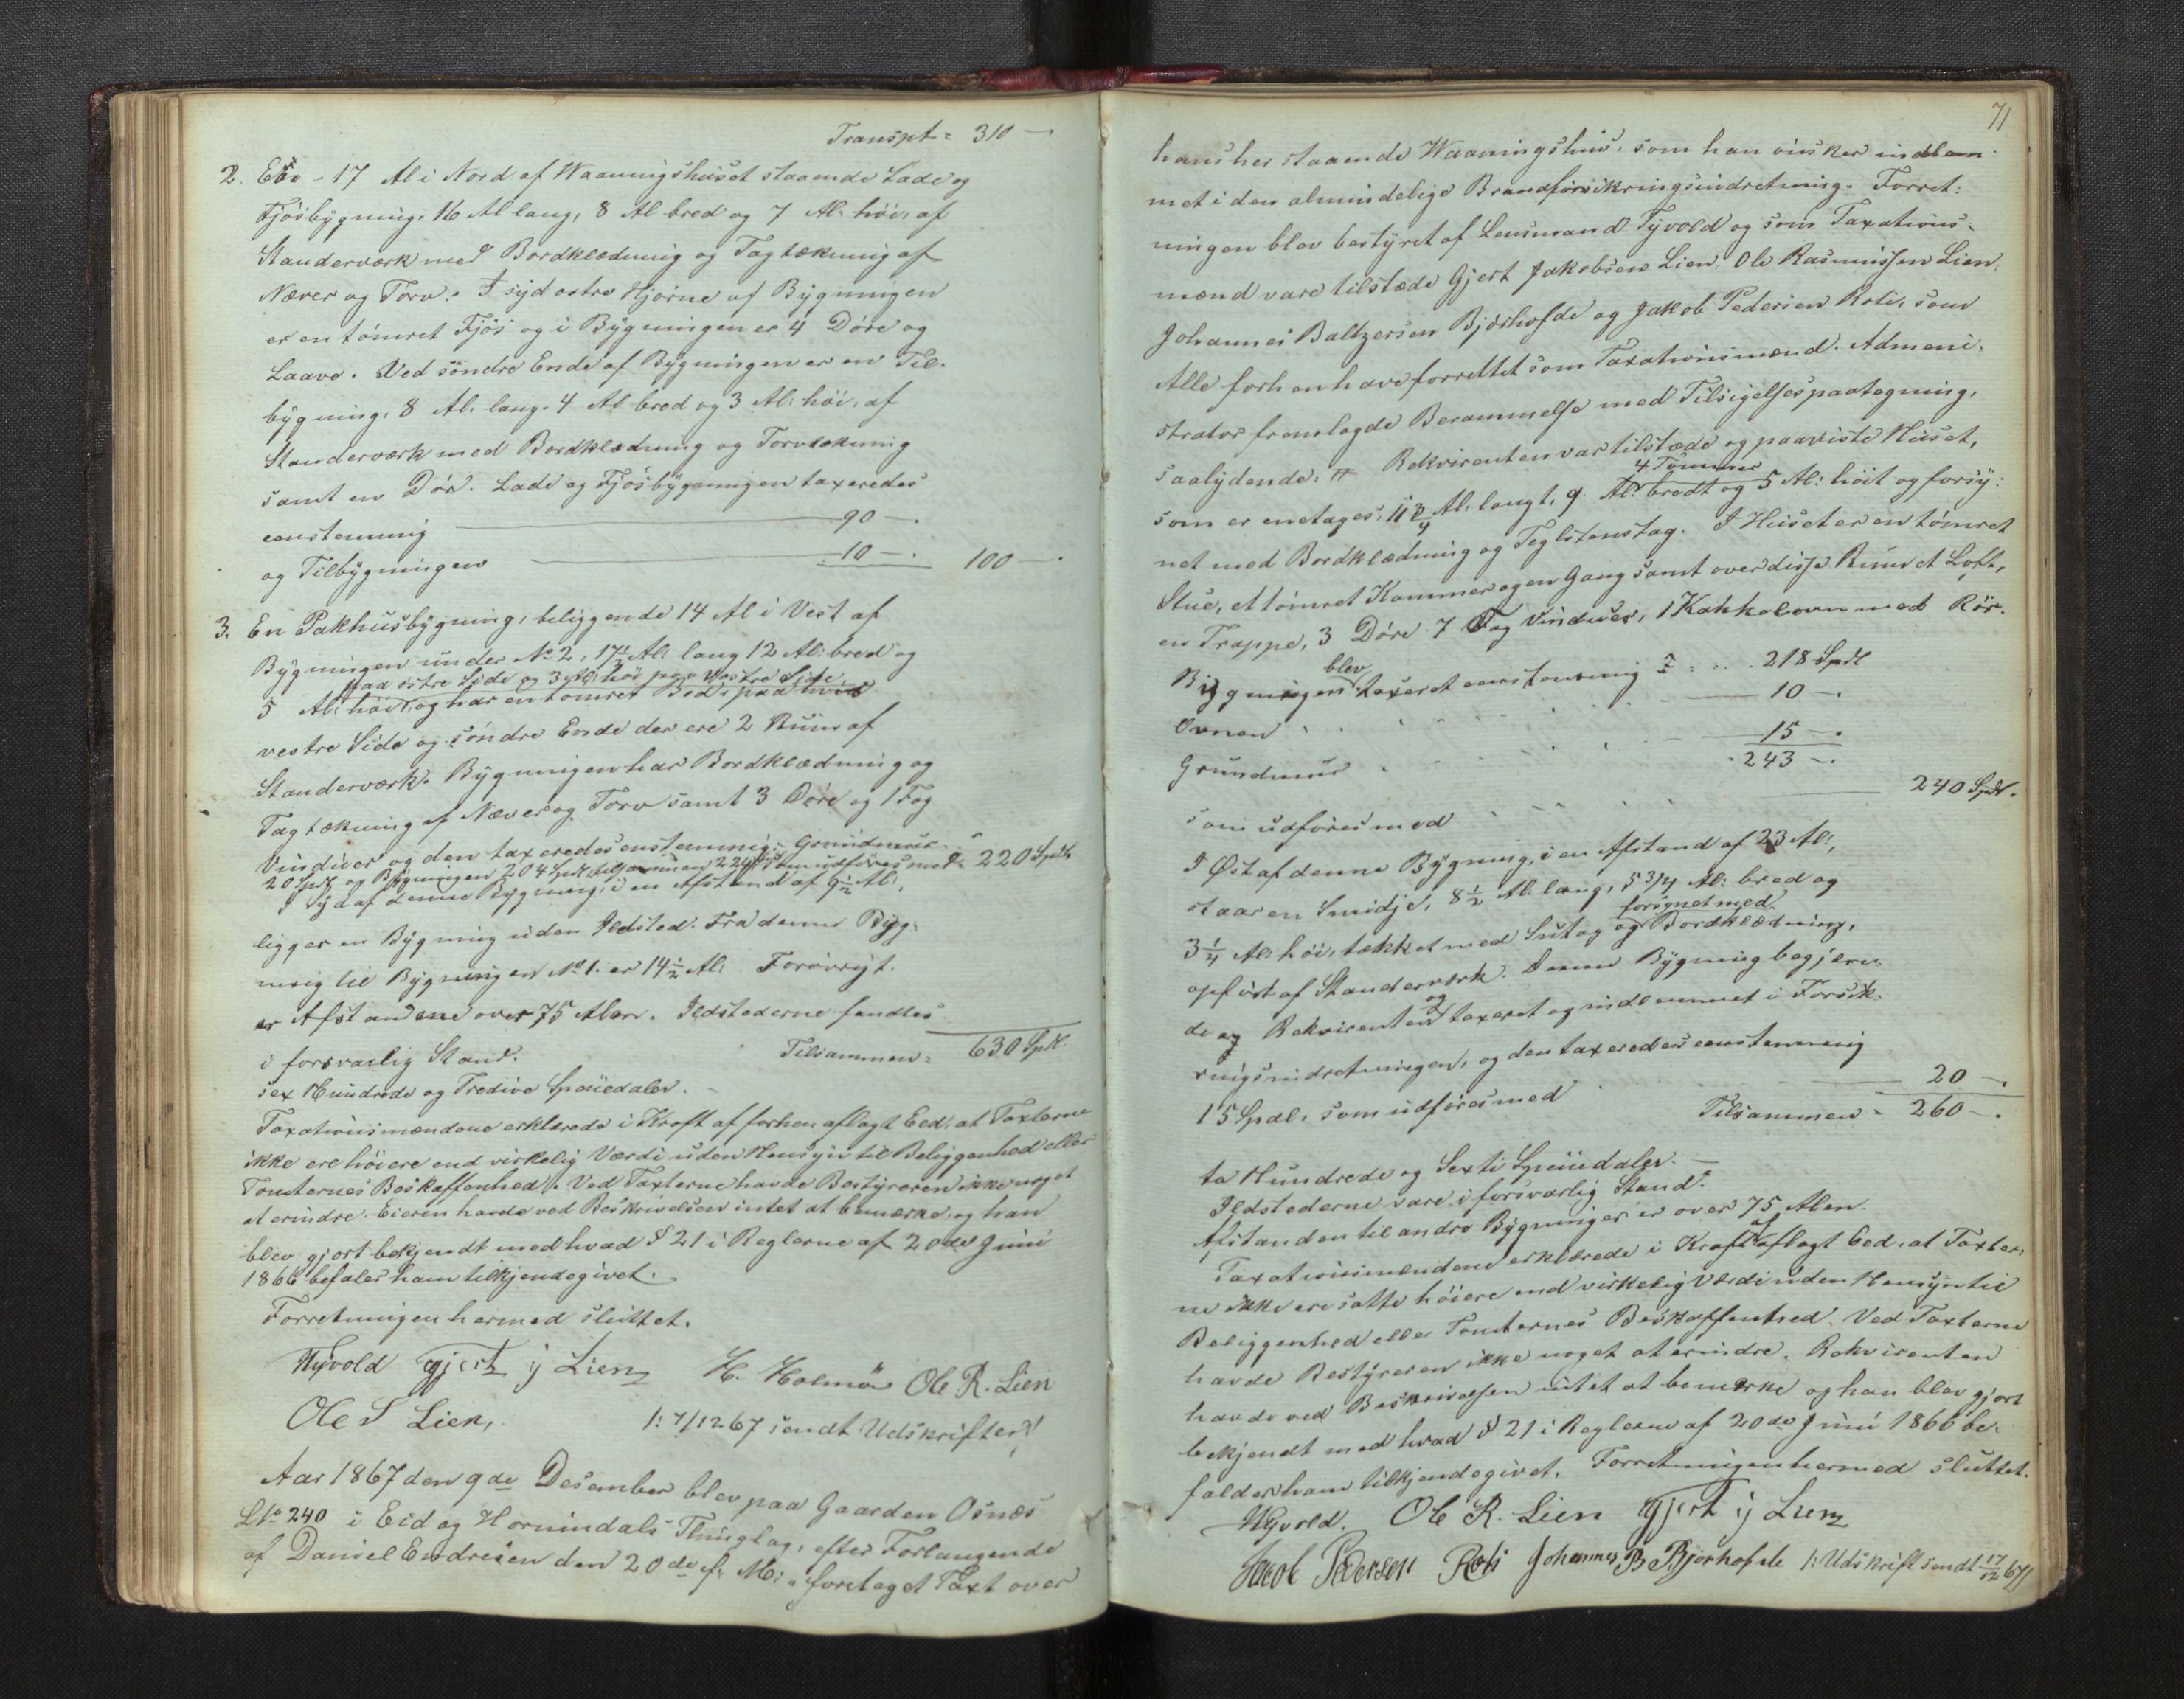 Transpt = 310 —
2. En - 17 Al i Nord af Waaningshuset staaende Lade og
Fjösbygning, 16 Al lang, 8 Al bred og 7 Al: höi, af
Standerværk med Bordklædning og Tagtækning af
Næver og Torv. I sydostre Hjörne af Bygningen
er en tömret Fjös og i Bygningen er 4 Döre og
Laave. Ved söndre Ende af Bygningen er en Til-
bygning, 8 Al. lang, 4 Al bred og 3 Al: höi, af
Standerværk med Bordklædning og Torvtækning
samt en Dör. Lade og Fjösbygningen taxeredes
eenstemmig — 90 —.
og Tilbygningen — 10 —. 100 —.
3. En Pakhusbygning, beliggende 14 Al i Vest af
Bygningen under No 2, 17½ Al: lang 12 Al: bred og
paa östre Side og 3 Al: höi paa vestre Side
5 Al: höi, og har en tömret Bod, paa hvis
vestre Side og söndre Ende der ere 2 Rum af
Standerværk. Bygningen har Bordklædning og
Tagtækning af Næver og Torv samt 3 Döre og 1 Fag
Vinduer og den taxeredes eenstemmig: Grundmur
20 Spdl og Bygningen 204 Spdl, tilsammen 224 som udföres med = 220 Spdl
I Syd af denne Bygning, i en Afstand af 9½ Al:,
ligger en Bygning uden Ildsted. Fra denne Byg-
ning til Bygningen No 1. er 14½ Al: Forövrigt
er Afstandene over 75 Alen. Ildstederne fandtes
i forsvarlig Stand. Tilsammen = 630 Spdl.
sex Hundrede og Tredive Speciedaler. —
Taxationsmændene erklærede i Kraft af forhen aflagt Eed, at Taxterne
ikke ere höiere end virkelig Værdi uden Hensyn til Beliggenhed eller
Tomternes Beskaffenhed. Ved Taxterne havde Bestyreren ikke noget
at erindre. Eieren havde ved Beskrivelsen intet at bemærke, og han
blev gjort bekjendt med hvad § 21 i Reglerne af 20de Juni
1866 befaler ham tilkjendegivet.
Forretningen hermed sluttet.
Hyvold Gjert J Lien H. Holmö Ole R. Lien
Ole S Lien, 1: 7/12 67 sendt Udskrifter:/
Aar 1867 den 9de Desember blev paa Gaarden Osnæs
LNo 240 i Eid og Hornindals Thinglag, efter Forlangende
af Daniel Endresen den 20de f. M: foretaget Taxt over
71
hans her staaende Waaningshus, som han önsker indlem-
met i den almindelige Brandforsikringsindretning. Forret-
ningen blev bestyret af Lensmand Hyvold og som Taxations-
mænd vare tilstæde Gjert Jakobsen Lien, Ole Rasmussen Lien,
Johannes Baltzersen Bjørhofde og Jakob Pedersen Roti, som
Alle forhen have forrettet som Taxationsmænd. Admini-
strator fremlagde Berammelse med Tilsigelsespaategning,
saalydende: # Rekvirenten var tilstæde og paaviste Huset,
4 Tommer
som er enetages, 11¾ Al: langt, 9 Al: bredt og 5 Al: höit og forsy-
net med Bordklædning og Teglstenstag. I Huset er en tömret
Stue, et tömret Kammer og en Gang samt over disse Rum et Loft,
en Trappe, 3 Döre 7 Fag Vinduer, 1 Kakkelovn med Rör.
blev
Bygningen taxeret eenstemmig . . . 218 Spdl
Ovnen — 10 —.
Grundmur — 15 —.
243 —.
som udföres med — 240 Spdl.
I Øst af denne Bygning, i en Afstand af 23 Al:,
staar en Smidje, 8½ Al: lang, 5 3/4 Al: bred og
forsynet med
3¼ Al: höi, tækket med Sutag og Bordklædning,
opfört af Standerværk. Denne Bygning begjære-
og
de Rekvirenten taxeret og indlemmet i Forsik-
ringsindretningen, og den taxeredes eenstemmig
15 Spdl. som udföres med — 20 —.
Tilsammen = 260 —.
to Hundrede og Sexti Speciedaler. —
Ildstederne vare i forsvarlig Stand.
Afstanden til andre Bygninger er over 75 Alen.
af
Taxationsmændene erklærede i Kraft aflagt Eed, at Taxter-
ne ikke ere satte höiere end virkelig Værdi uden Hensyn til
Beliggenhed eller Tomternes Beskaffenhed. Ved Taxterne
havde Bestyreren ikke noget at erindre. Rekvirenten
havde ved Beskrivelsen intet at bemærke og han blev gjort
bekjendt med hvad § 21 i Reglerne af 20de Juni 1866 be-
falder ham tilkjendegivet. Forretningen hermed sluttet.
Hyvold. Ole R. Lien Gjert J Lien
Jacob Pedersen Roti Johannes B Bjørhofde 1: Udskrift sendt 17/12 67/